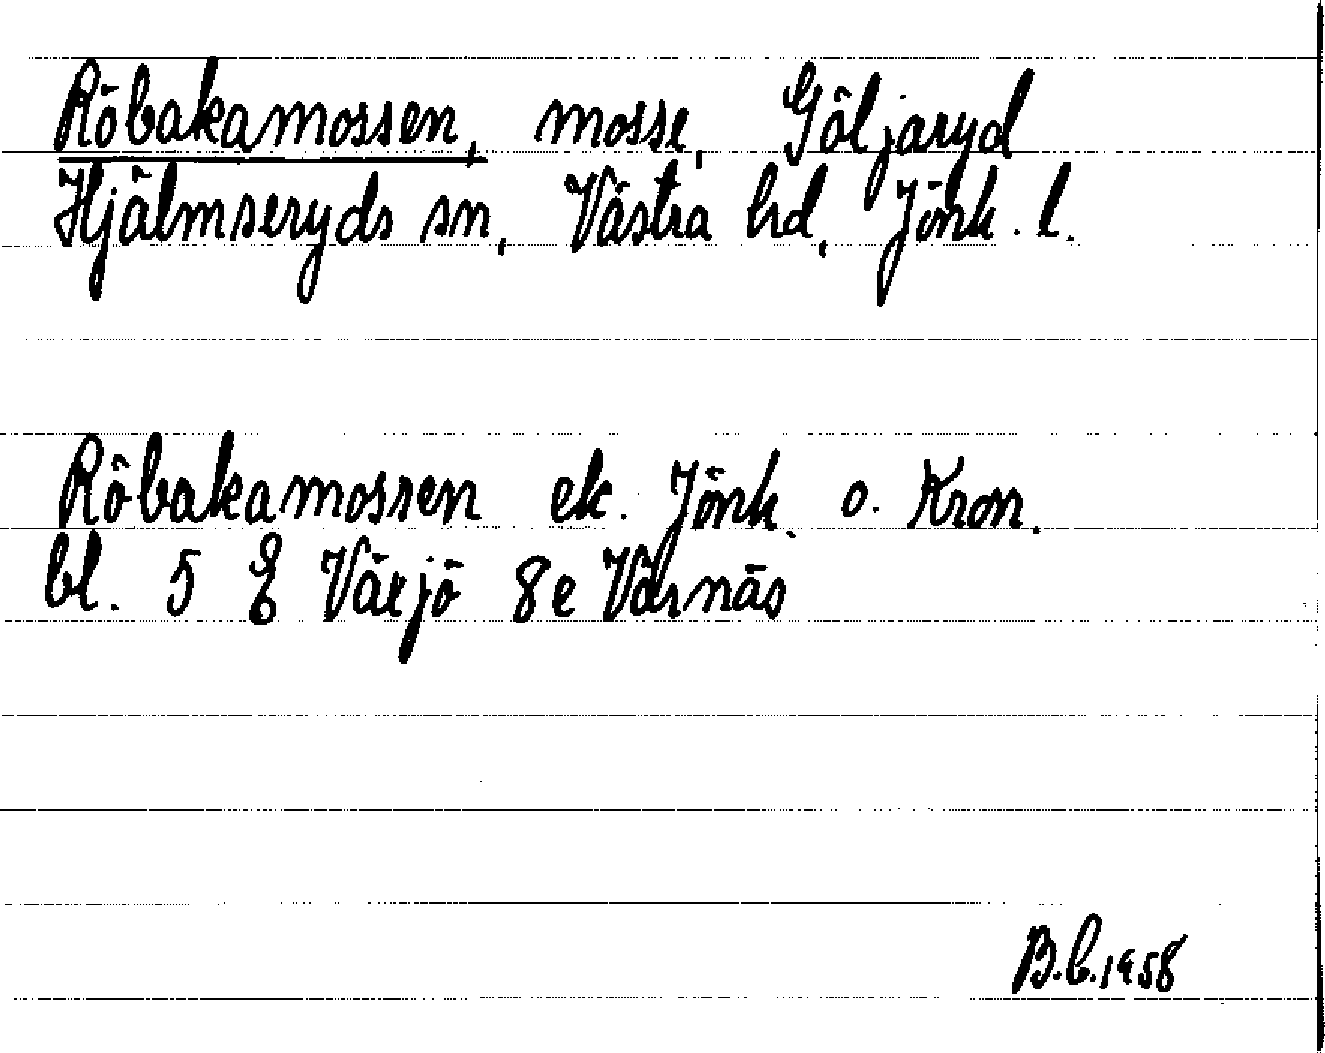 Röbakamossen, mosse, Göljaryd
Hjälmseryds sn, Västra hd, Jönk. l.
Röbakamossen ek. Jönk. o. Kron.
bl. 5 E Växjö 8e Vårnäs
B.C. 1958